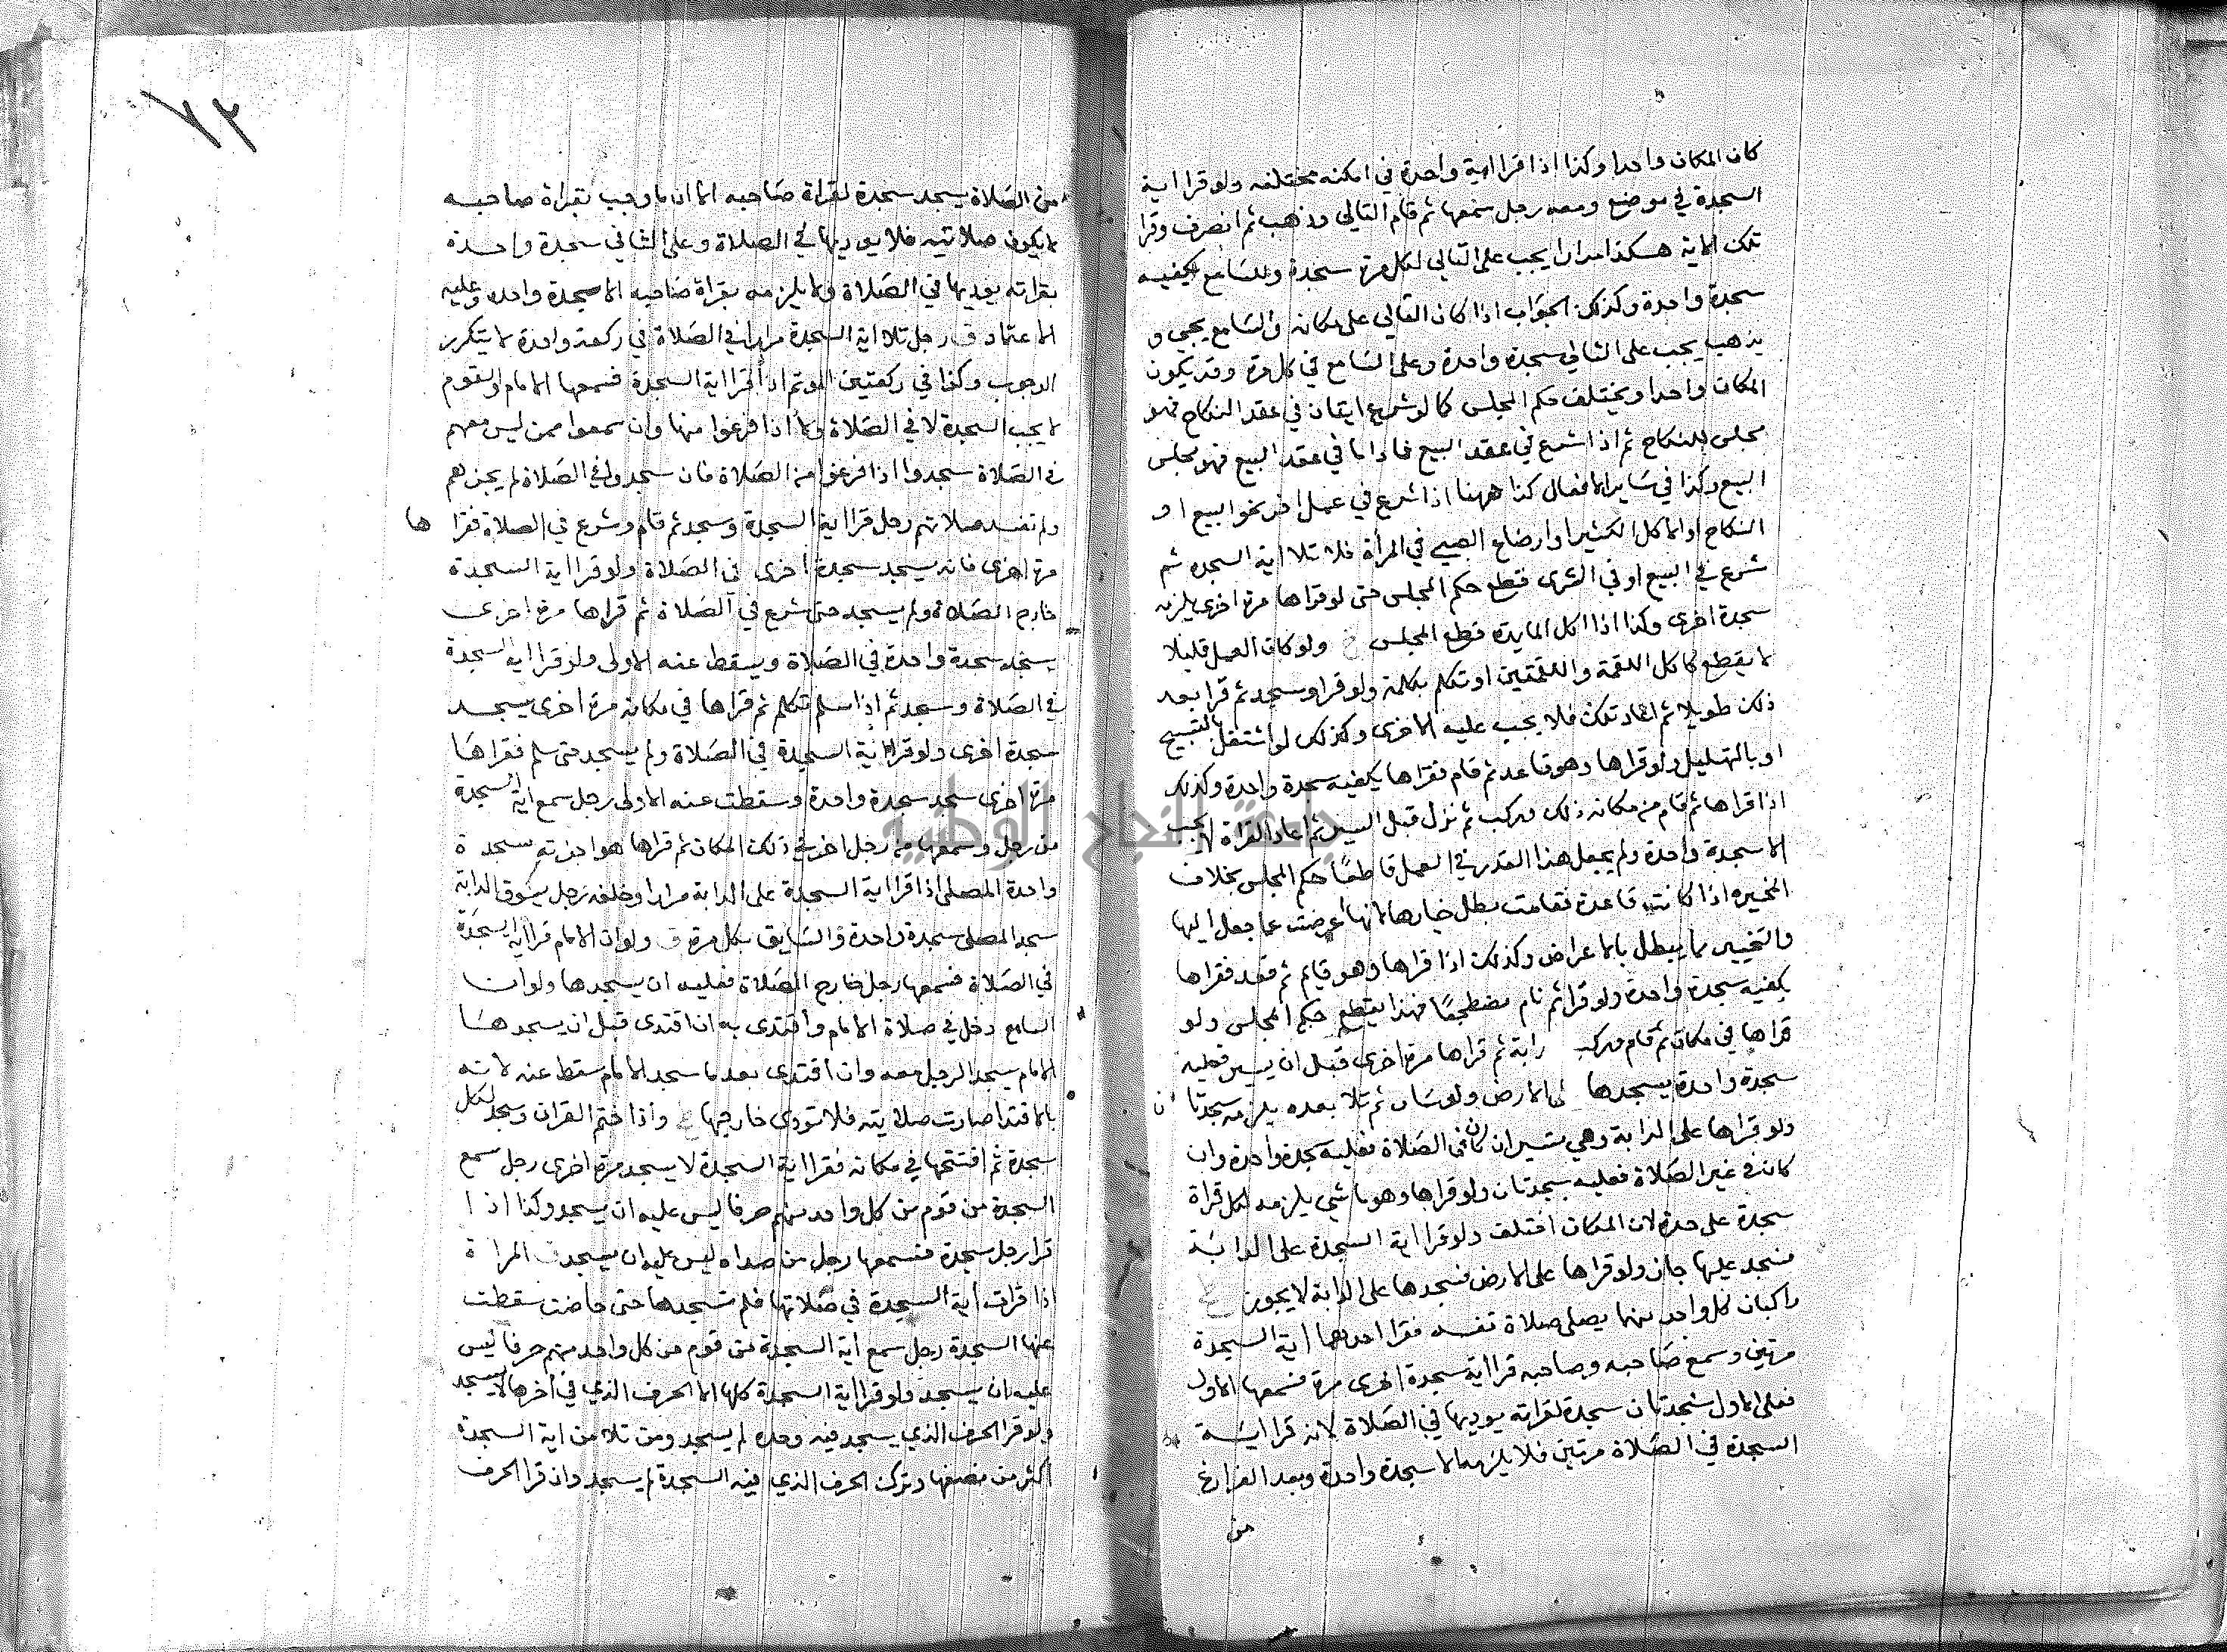 كان المكان واحدا وكذا اذا قرا اية واحدة في امكنه مختلفه ولو قرا اية
السجدة في موضع ومعه رجل سمعها ثم قام التالي وذهب ثم انصرف وقرا
تلك الاية هكذا مرارا يجب على التالي لكل مرة سجدة وللسامع يكفيه
سجدة واحدة وكذلك الجواب اذا كان التالي على مكانه والسامع يجي و
يذهب يجب على التالي سجدة واحدة وعلى السامع في كل مرة وقد يكون
المكان واحدا ويختلف حكم المجلس كما لو شرع في عقد النكاح فهو
مجلس للنكاح ثم اذا شرع في عقد البيع فما داما في عقد البيع فهو مجلس
البيع وكذا في ساير الافعال كذا ههنا اذا شرع في عمل اخر نحو البيع او
النكاح او الاكل الكثير او ارضاع الصبي في المرأة فلا تلا اية السجده ثم
شرع في البيع او في الشرى قطع حكم المجلس حتى لو قراها مرة اخرى يلزمه
سجدة اخرى وكذا اذا اكل المايدة قطع المجلس ولو كان العمل قليلا
لا يقطع كاكل اللقمة واللقمتين او تكلم بكلمة ولو قرا وسجد ثم قرا بعد
ذلك طويلا ثم اعاد تلك فلا يجب عليه الاخرى وكذلك لو اشتغل بالتسبيح
او بالتهليل ولو قراها وهو قاعد ثم قام فقراها يكفيه سجدة واحدة وكذلك
اذا قراها ثم قام من مكانه ذلك وركب ثم نزل قبل السير ثم اعاد القراة لا يجب
الا سجدة واحدة ولم يجعل هذا القدر في العمل قاطعا حكم المجلس بخلاف
المخيره اذا كانت قاعدة فقامت بطل خيارها لانها اعرضت عما جعل اليها
والتخيير مما يبطل بالاعراض وكذلك اذا قراها وهو قايم ثم قعد فقراها
يكفيه سجدة واحدة ولو قرا ثم نام مضطجعا فهذا يقطع حكم المجلس ولو
قراها في مكان ثم قام وركب دابة ثم قراها مرة اخرى قبل ان يسير فعليه
سجدة واحدة يسجدها على الارض ولو سار ثم تلا بعده يلزمه سجدتان
ولو قراها على الدابة وهي تسير ان كان في الصلاة فعليه سجدة واحدة وان
كان في غير الصلاة فعليه سجدتان ولو قراها وهو ماشي يلزمه لكل قراة
سجدة على حدة لان المكان اختلف ولو قرا اية السجدة على الدابة
فسجد عليها جاز ولو قراها على الارض فسجدها على الدابة لا يجوز
راكبان كل واحد منهما يصلي صلاة نفسه فقرا احدهما اية السجدة
مرتين وسمع صاحبه وصاحبه قرا اية سجدة اخرى مرة فسمعها الاول
فعلى الاول سجدتان سجدة لقراته يوديها في الصلاة لانه قرا اية
السجدة في الصلاة مرتين فلا يلزمه الا سجدة واحدة وبعد الفراغ
من
٧٢
من الصلاة يسجد سجدة لقراة صاحبه الا ان ما وجب بقراة صاحبه
لا يكون صلاتيه فلا يوديها في الصلاة وعلى الثاني سجدة واحدة
بقراته يوديها في الصلاة ولا يلزمه بقراة صاحبه الا سجدة واحده وعليه
الاعتماد ق رجل تلا اية السجدة مرارا في الصلاة في ركعة واحدة لا يتكرر
الوجوب وكذا في ركعتين الموتم اذا قرا اية السجدة فسمعها الامام والقوم
لا يجب السجدة لا في الصلاة ولا اذا فرغوا منها وان سمعوا ممن ليس معهم
في الصلاة سجدوا اذا فرغوا من الصلاة فان سجدوا في الصلاة لم يجزهم
ولم تفسد صلاتهم رجل قرا اية السجدة وسجد ثم قام وشرع في الصلاة فقراها
مرة اخرى فانه يسجد سجدة اخرى في الصلاة ولو قرا اية السجدة
خارج الصلاة ولم يسجد حتى شرع في الصلاة ثم قراها مرة اخرى
يسجد سجدة واحدة في الصلاة ويسقط عنه الاولى ولو قرا اية السجدة
في الصلاة وسجد ثم اذا سلم تكلم ثم قراها في مكانه مرة اخرى يسجد
سجدة اخرى ولو قرا اية السجدة في الصلاة ولم يسجد حتى سلم فقراها
مرة اخرى سجد سجدة واحدة وسقطت عنه الاولى رجل سمع اية السجدة
من رجل وسمعها من رجل اخر في ذلك المكان ثم قراها هو اجزته سجدة
واحدة المصلي اذا قرا اية السجدة على الدابة مرارا وخلفه رجل يسوق الدابة
سجد المصلي سجدة واحدة والسايق بكل مرة ق ولو ان الامام قرا اية السجدة
في الصلاة فسمعها رجل خارج الصلاة فعليه ان يسجدها ولو ان
السامع دخل في صلاة الامام واقتدى به ان اقتدى قبل ان يسجدها
الامام يسجد الرجل معه وان اقتدى بعد ما سجد الامام سقط عنه لانه
بالاقتدا صارت صلاتيته فلا تودى خارجها واذا ختم القران وسجد لكل
سجدة ثم افتتحها في مكانه فقرا اية السجدة لا يسجد مرة اخرى رجل سمع
السجدة من قوم من كل واحد منهم حرفا ليس عليه ان يسجد وكذا اذا
قرا رجل سجدة فسمعها رجل من صداه ليس عليه ان يسجد ق المراة
اذا قرات اية السجدة في صلاتها فلم تسجدها حتى حاضت سقطت
عنها السجدة رجل سمع اية السجدة من قوم من كل واحد منهم حرفا ليس
عليه ان يسجد ولو قرا اية السجدة كلها الا الحرف الذي في اخرها لا يسجد
ولو قرا الحرف الذي يسجد فيه وحده لم يسجد ومن تلا من اية السجدة
اكثر من نصفها وترك الحرف الذي فيه السجدة لم يسجد وان قرا الحرف
جامعة النجاح الوطنية